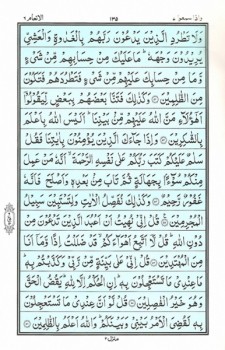 واذا سمعوا ٧
١٣٥
الانعام ٦
وَلَا تَطْرُدِ الَّذِيْنَ يَدْعُوْنَ رَبَّهُمْ بِالْغَدٰوةِ وَالْعَشِيِّ
يُرِيْدُوْنَ وَجْهَهٗ ؕ مَا عَلَيْكَ مِنْ حِسَابِهِمْ مِّنْ شَيْءٍ
وَّمَا مِنْ حِسَابِكَ عَلَيْهِمْ مِّنْ شَيْءٍ فَتَطْرُدَهُمْ فَتَكُوْنَ
مِنَ الظّٰلِمِيْنَ ۝ وَكَذٰلِكَ فَتَنَّا بَعْضَهُمْ بِبَعْضٍ لِّيَقُوْلُوْۤا
اَهٰۤؤُلَآءِ مَنَّ اللّٰهُ عَلَيْهِمْ مِّنْۢ بَيْنِنَا ؕ اَلَيْسَ اللّٰهُ بِاَعْلَمَ
بِالشّٰكِرِيْنَ ۝ وَاِذَا جَآءَكَ الَّذِيْنَ يُؤْمِنُوْنَ بِاٰيٰتِنَا فَقُلْ
سَلٰمٌ عَلَيْكُمْ كَتَبَ رَبُّكُمْ عَلٰى نَفْسِهِ الرَّحْمَةَ ۙ اَنَّهٗ مَنْ عَمِلَ
مِنْكُمْ سُوْٓءًۢا بِجَهَالَةٍ ثُمَّ تَابَ مِنْۢ بَعْدِهٖ وَاَصْلَحَ فَاَنَّهٗ
غَفُوْرٌ رَّحِيْمٌ ۝ وَكَذٰلِكَ نُفَصِّلُ الْاٰيٰتِ وَلِتَسْتَبِيْنَ سَبِيْلُ
الْمُجْرِمِيْنَ ۝ قُلْ اِنِّيْ نُهِيْتُ اَنْ اَعْبُدَ الَّذِيْنَ تَدْعُوْنَ مِنْ
دُوْنِ اللّٰهِ ؕ قُلْ لَّاۤ اَتَّبِعُ اَهْوَآءَكُمْ ۙ قَدْ ضَلَلْتُ اِذًا وَّمَاۤ اَنَا
مِنَ الْمُهْتَدِيْنَ ۝ قُلْ اِنِّيْ عَلٰى بَيِّنَةٍ مِّنْ رَّبِّيْ وَكَذَّبْتُمْ بِهٖ ؕ
مَا عِنْدِيْ مَا تَسْتَعْجِلُوْنَ بِهٖ ؕ اِنِ الْحُكْمُ اِلَّا لِلّٰهِ ؕ يَقُصُّ الْحَقَّ
وَهُوَ خَيْرُ الْفٰصِلِيْنَ ۝ قُلْ لَّوْ اَنَّ عِنْدِيْ مَا تَسْتَعْجِلُوْنَ
بِهٖ لَقُضِيَ الْاَمْرُ بَيْنِيْ وَبَيْنَكُمْ ؕ وَاللّٰهُ اَعْلَمُ بِالظّٰلِمِيْنَ ۝
منزل ٢